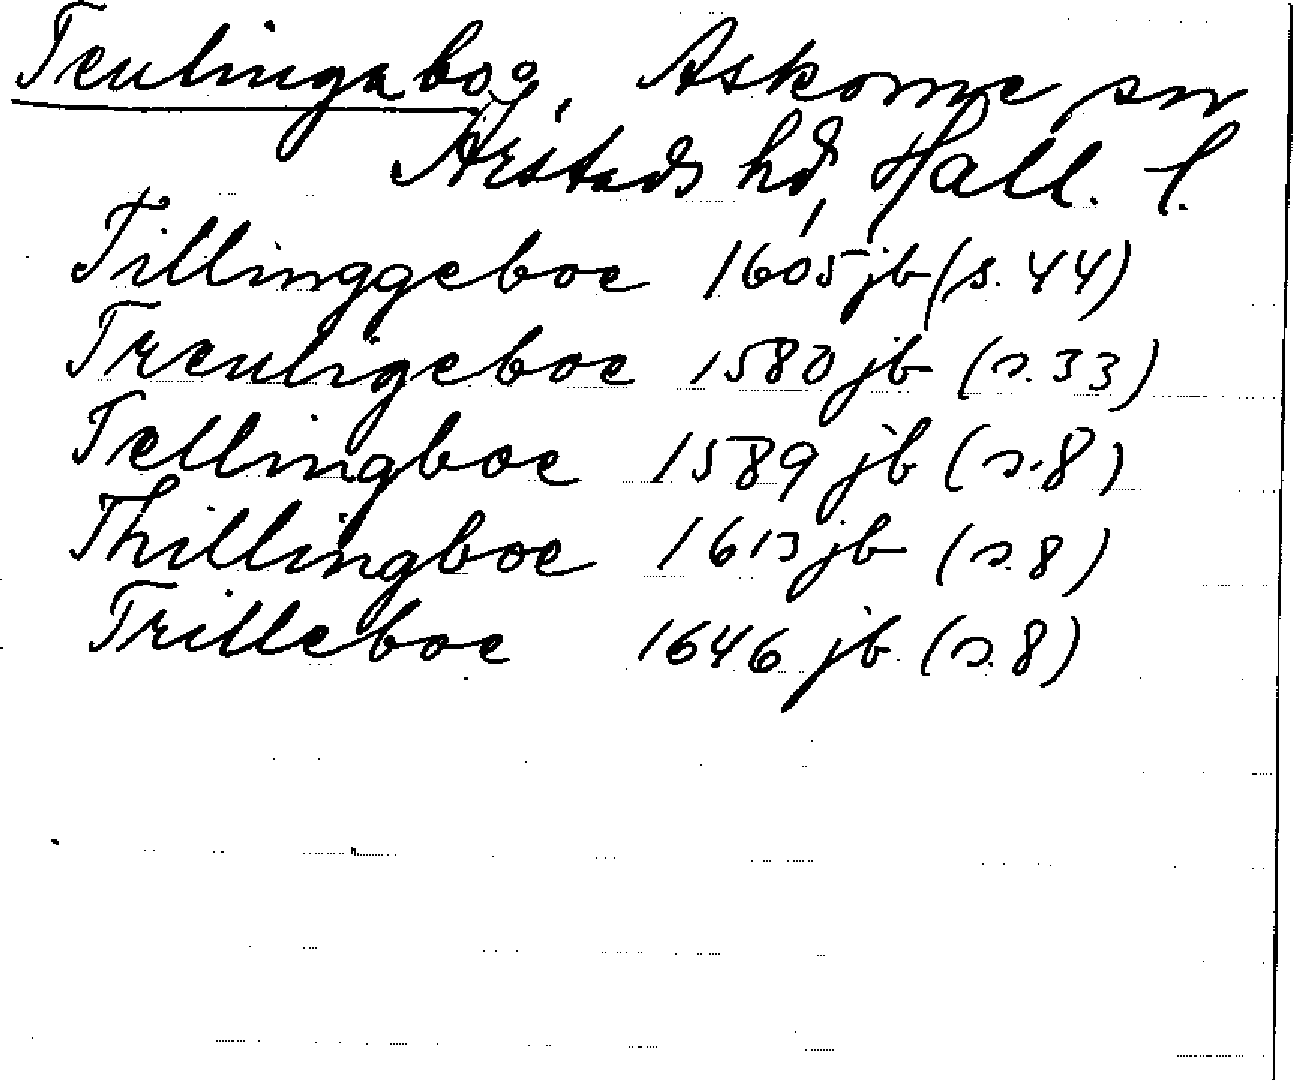 Teulingabog, Askome sn
Årstads hd, Hall. l.
Tillinggeboe 1605 jb (s. 44)
Treuligeboe 1580 jb (s. 33)
Tellingboe 1589 jb (s. 8)
Thillingboe 1613 jb (s. 8)
Trilleboe 1646 jb (s. 8)